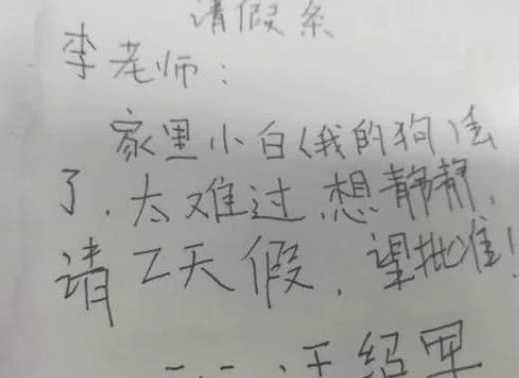 请假条
李老师：
家里小白(我的狗)
了，太难过，想静静，
请2天假，望批准！